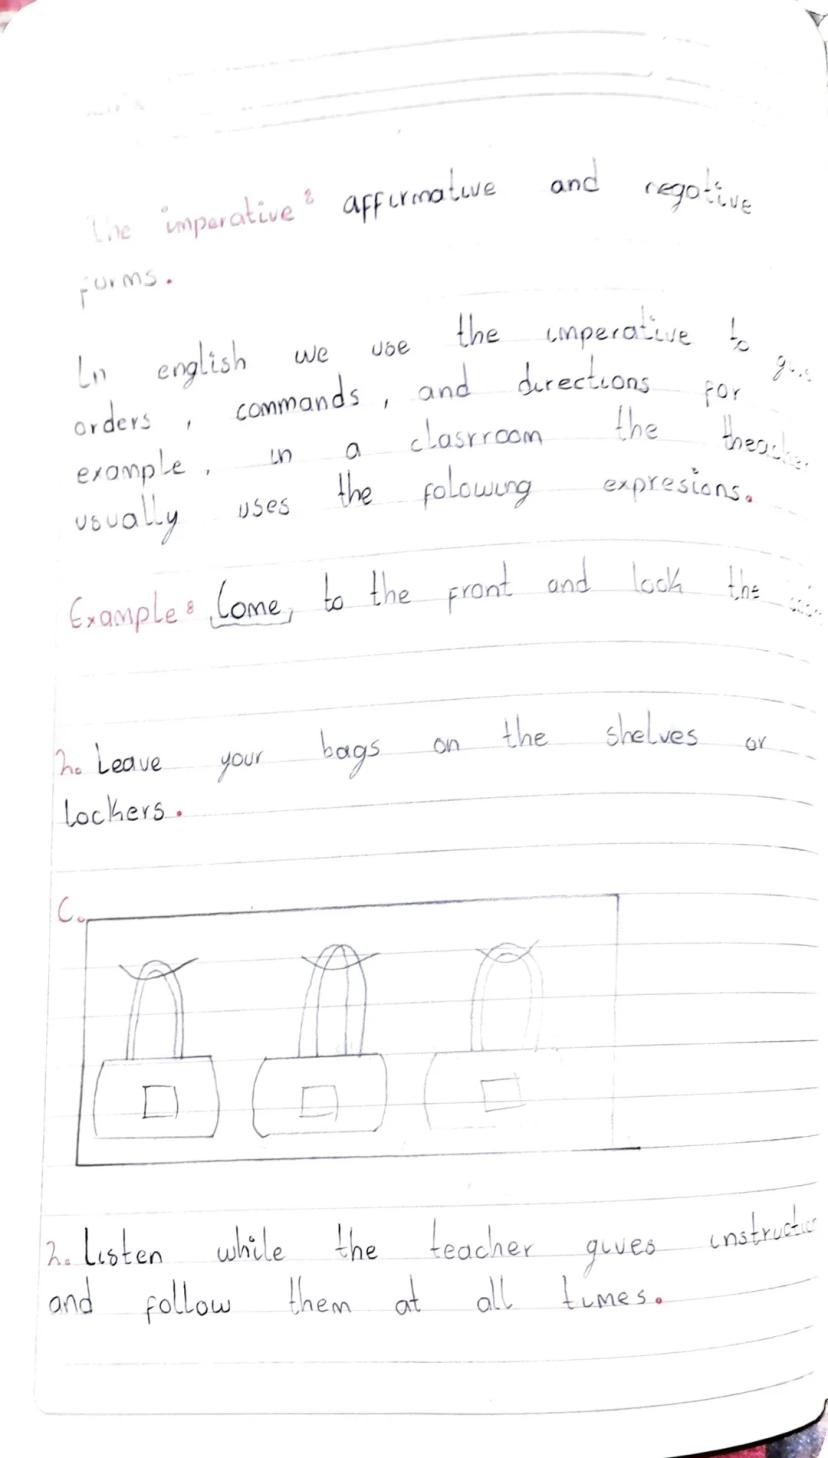 The imperative: affirmative and negative
forms.
In english we use the imperative to
orders, commands, and directions for
example, in a clasrroom the
usually uses the folowing expresions.
Example: Come, to the front and look the
2. Leave your bags on the shelves or
lockers.
C.
2. Listen while the teacher gives
and follow them at all times.